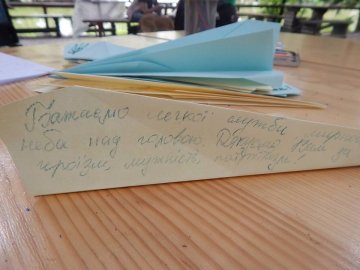 Бажаємо легкої служби, мирного
неба над головою. Дякуємо Вам за
героїзм, мужність, патріотизм!